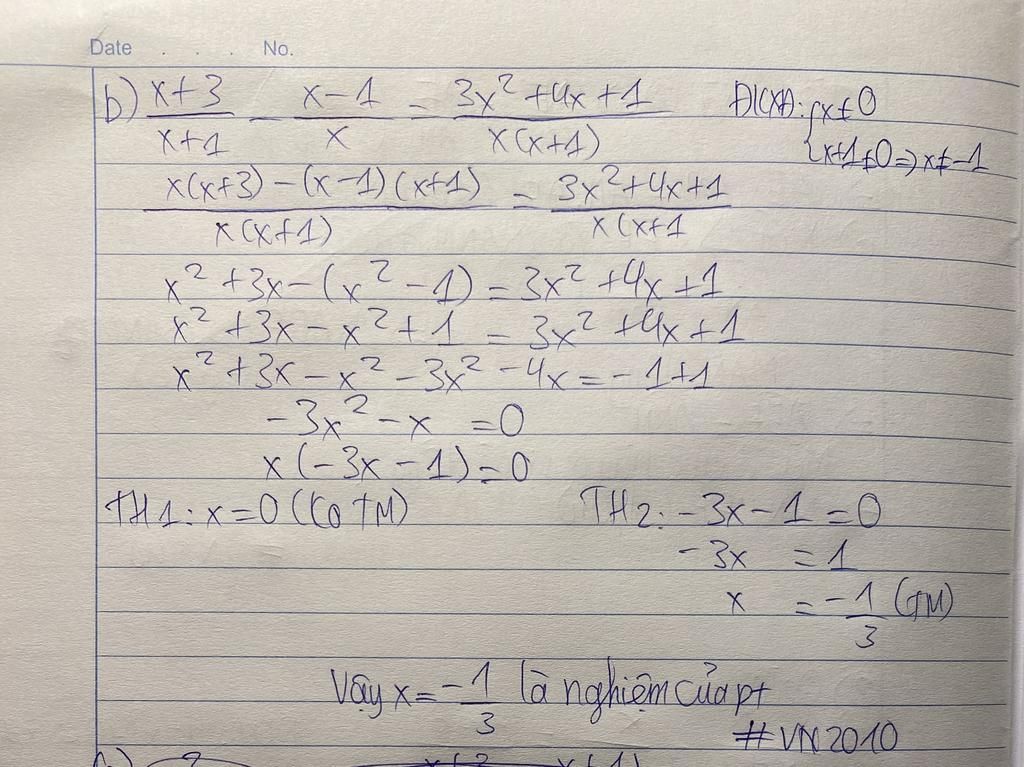 Date . . . No.
b) \frac{x+3}{x+1} - \frac{x-1}{x} = \frac{3x^2+4x+1}{x(x+1)} ĐKXĐ: { x≠0
{ x+1≠0 => x≠-1
\frac{x(x+3)-(x-1)(x+1)}{x(x+1)} = \frac{3x^2+4x+1}{x(x+1}
x^2+3x-(x^2-1)=3x^2+4x+1
x^2+3x-x^2+1=3x^2+4x+1
x^2+3x-x^2-3x^2-4x=-1+1
-3x^2-x=0
x(-3x-1)=0
TH1: x=0 (Ko TM) TH2: -3x-1=0
-3x=1
x=-\frac{1}{3} (TM)
Vậy x=-\frac{1}{3} là nghiệm của pt
#VN2010